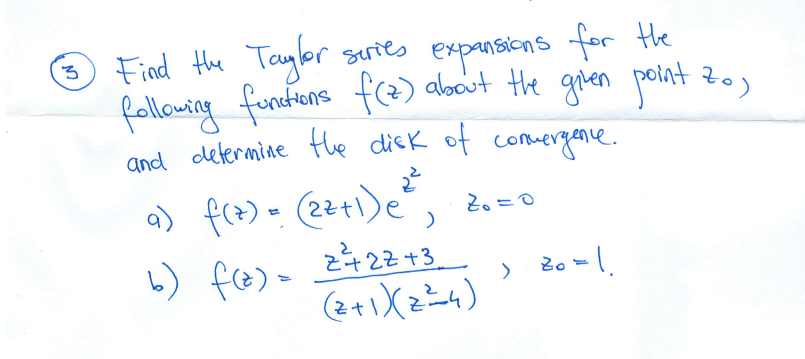 ③ Find the Taylor series expansions for the
following functions f(z) about the given point z₀,
and determine the disk of convergence.
a) f(z) = (2z+1)e^{z²}, z₀ = 0
b) f(z) = (z²+2z+3)/((z+1)(z²-4)), z₀ = 1.